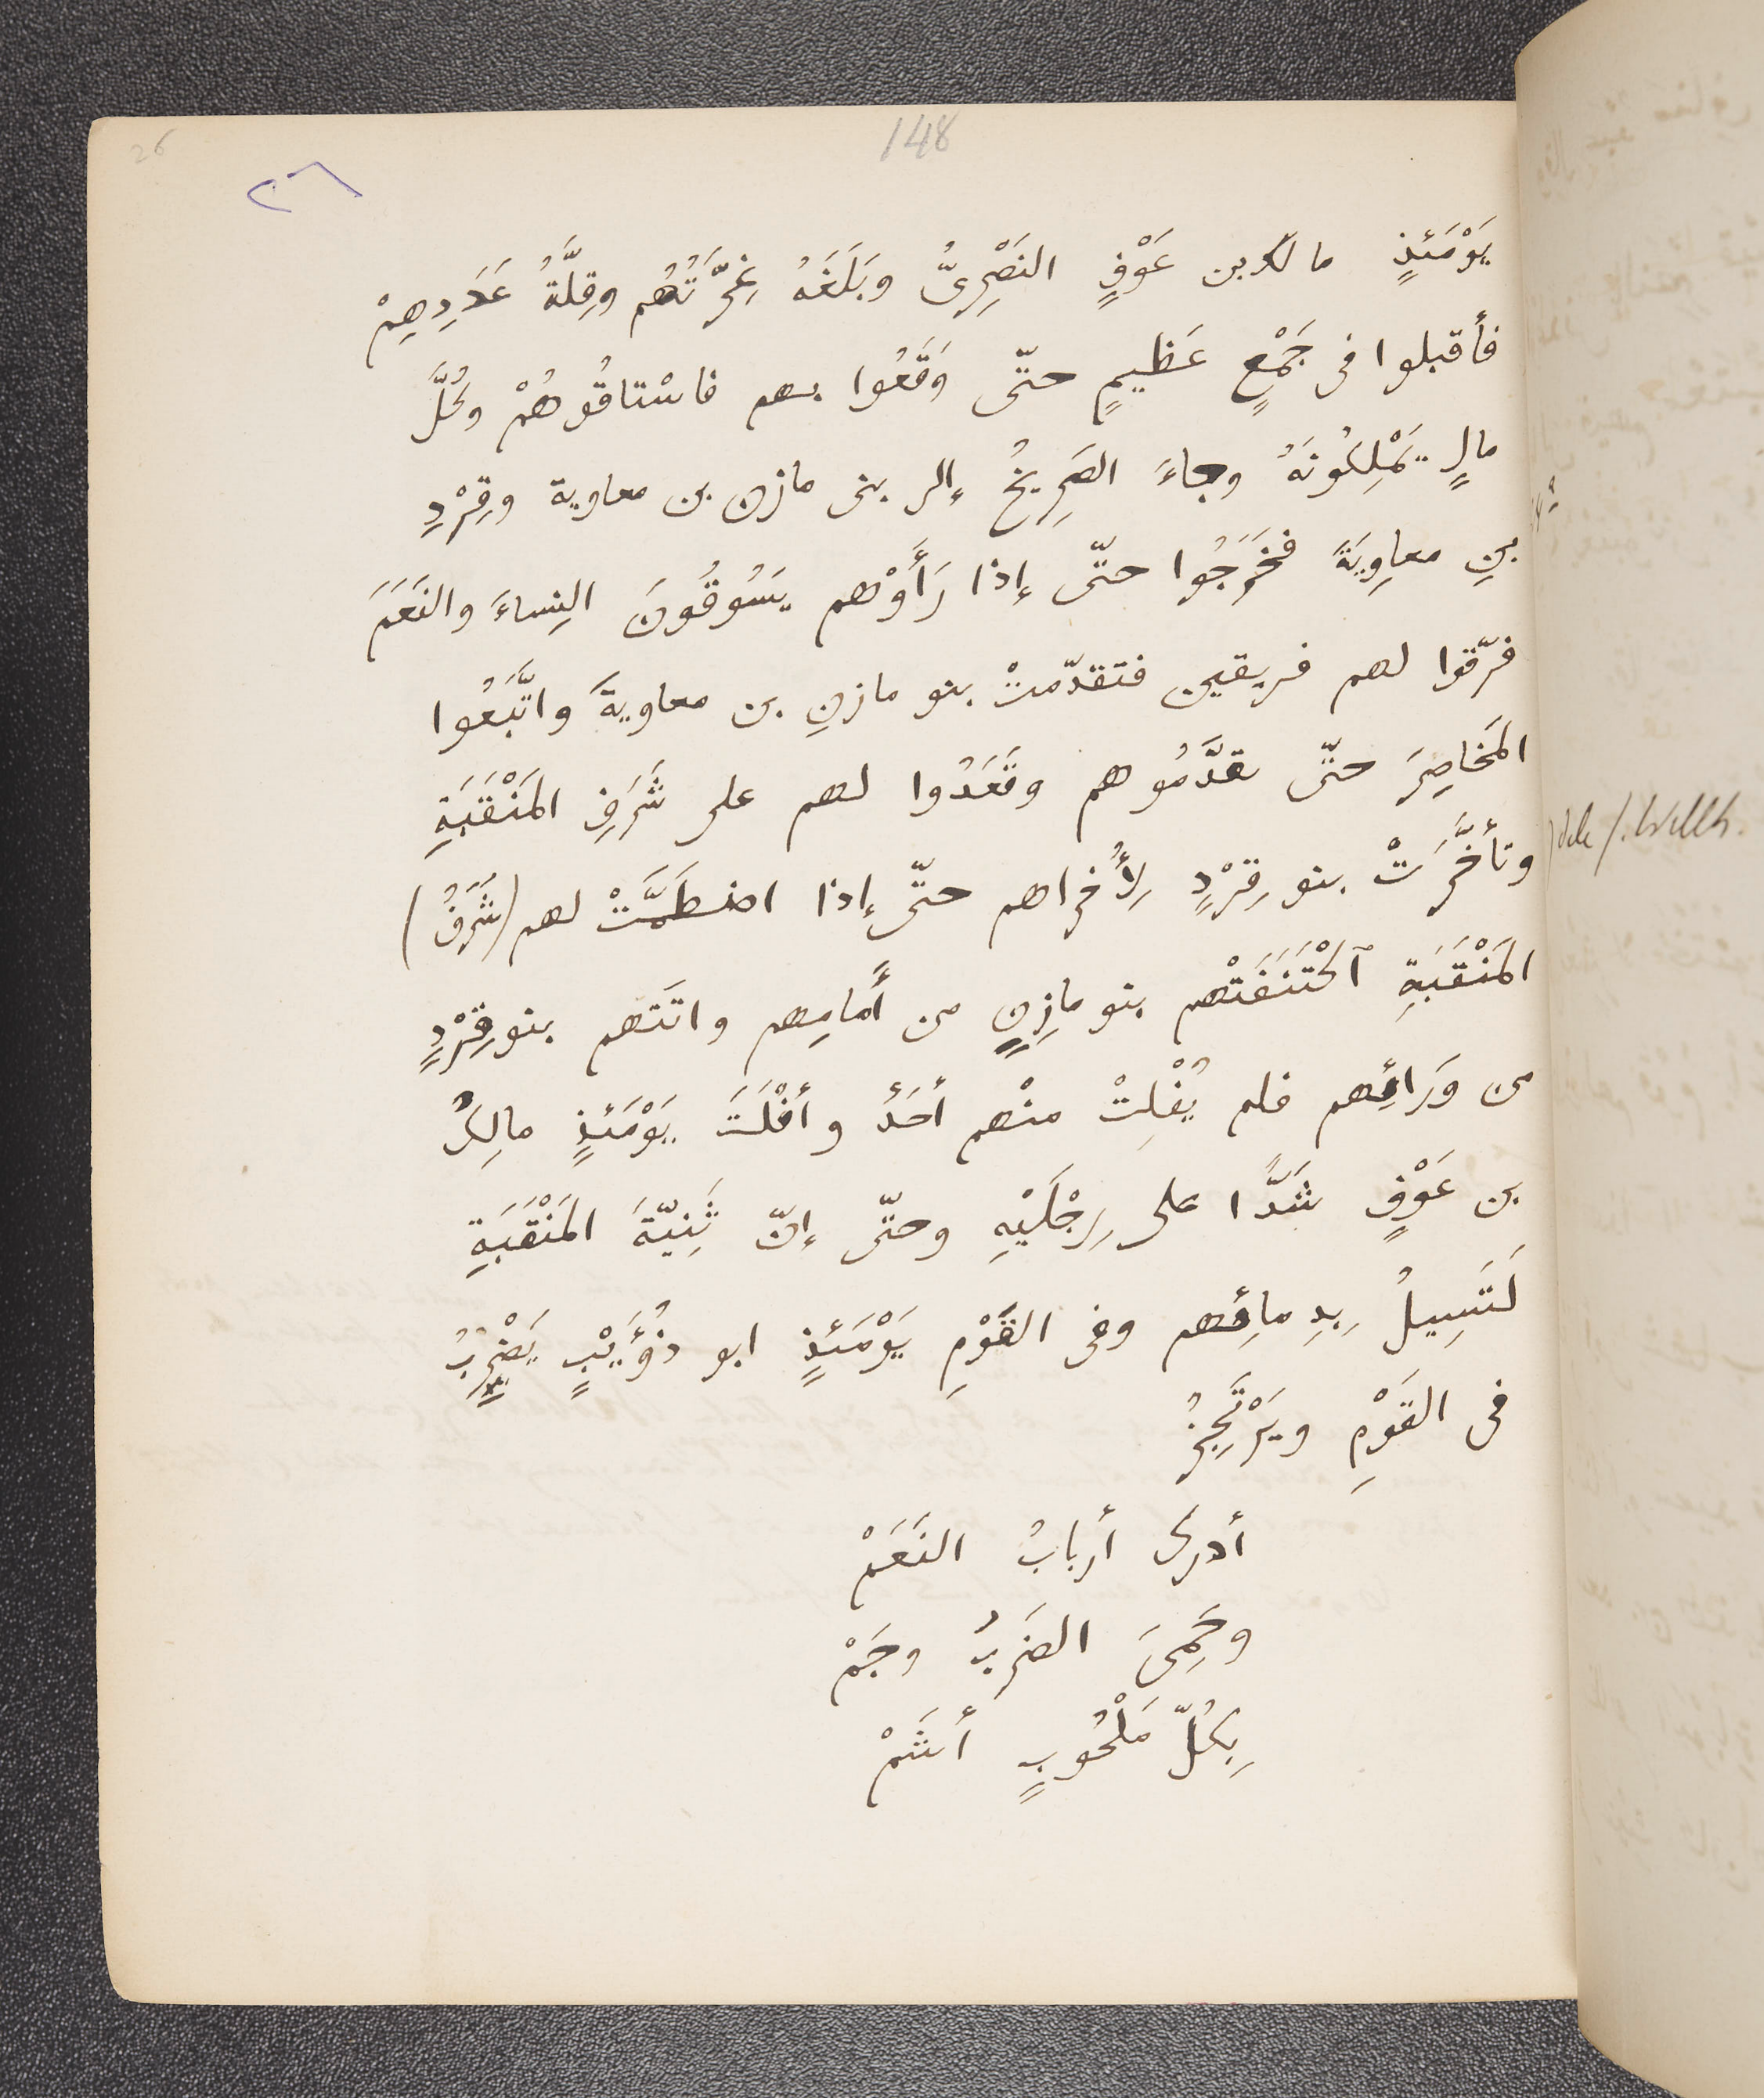 26
148
٢٦
يَوْمَئذٍ مالك بن عَوْفٍ النَصْرِىُّ وبَلَغَهُ غِرَّتُهُم وقِلَّةُ عَدَدِهِمْ
فأقبلوا فى جَمْعٍ عَظيمٍ حتّى وَقَعُوا بهم فاسْتاقُوهُمْ وكُلَّ
مالٍ يَمْلِكُونَهُ وجاءَ الصَرِيخُ إلى بنى مازن بن معاوية وقِرْدِ
بنِ معاوِيَةَ فخَرَجُوا حتّى إذا رَأَوْهم يَسُوقُونَ النِساءَ والنَعَمَ
فرّقوا لهم فريقين فتقدّمتْ بنو مازنِ بن معاويةَ واتَّبَعُوا
المَخاصِرَ حتّى تقدَّمُوهم وقَعَدُوا لهم على شَرَفِ المَنْقَبَةِ
وتأخَّرَتْ بنو قِرْدٍ لِأُخراهم حتّى إذا اضطَمَّتْ لهم (شَرَفُ)
المَنْقَبَةِ ٱكْتَنَفَتْهم بنو مازِنٍ من أَمامِهم واتَتهم بنو قِرْدٍ
من وَرَائِهم فلم يُفْلِتْ منْهم أحَدٌ وأفْلَتَ يَوْمَئذٍ مالِكُ
بن عَوْفٍ شَدًّا على رِجْلَيْهِ وحتّى إنّ ثَنِيّةَ المَنْقَبَةِ
لَتَسِيلُ بِدِمائِهم وفى القَوْمِ يَوْمَئذٍ ابو ذُؤَيْبٍ يَضْرِبُ
فى القَوْمِ ويَرْتَجِزُ
أدرك أربابُ النَعَمْ
وحَمِىَ الضَربُ وجَمْ
بِكُلّ مَلْحُوبٍ أَشَمْ